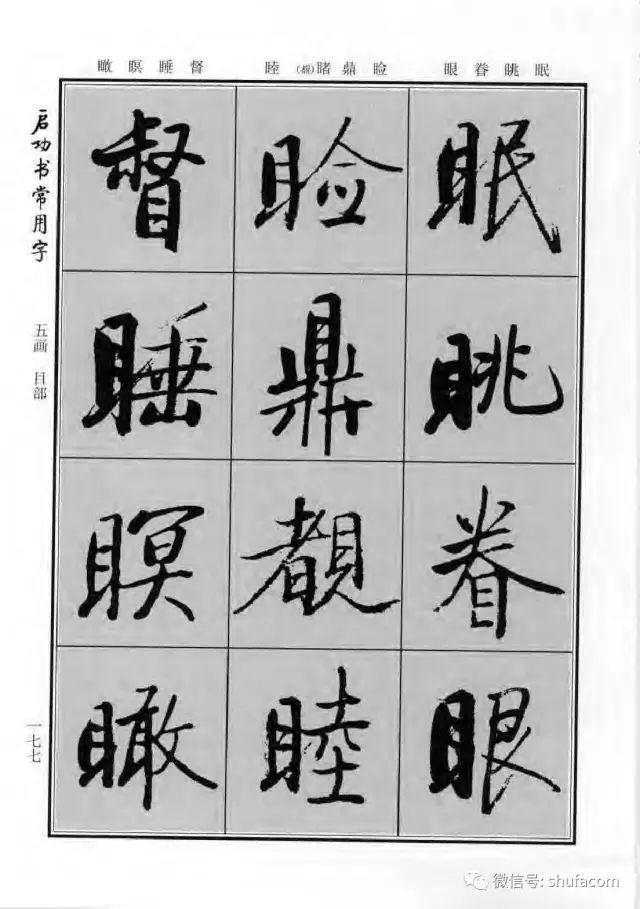 眠眺眷眼 睑鼎睹(覩)睦 督睡瞑瞰
眠眺眷眼
睑鼎覩睦
督睡瞑瞰
启功书常用字
五画 目部
一七七
微信号: shufacom